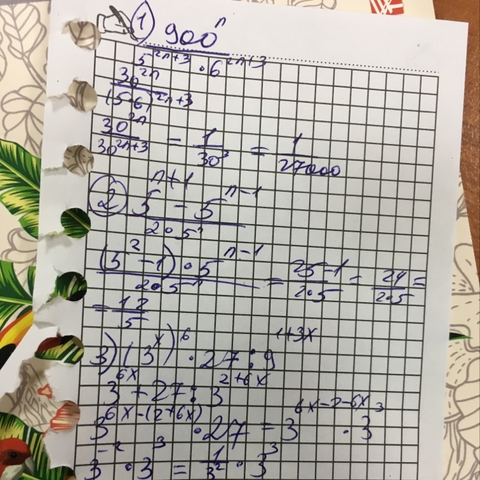 1) 900ⁿ
5²ⁿ⁺³ · 6²ⁿ⁺³
30²ⁿ
(5·6)²ⁿ⁺³
30²ⁿ / 30²ⁿ⁺³ - 1 / 30³ = 1 / 27000
2) 5ⁿ⁺¹ - 5ⁿ⁻¹
2·5ⁿ
(5² - 1) · 5ⁿ⁻¹ / 2·5ⁿ = 25-1 / 2·5 = 24 / 2·5 =
= 12 / 5
3) (3ˣ)⁶ · 27 : 9¹⁺³ˣ
3⁶ˣ + 27 : 3²⁺⁶ˣ
3⁶ˣ⁻⁽²⁺⁶ˣ⁾ · 27 = 3⁶ˣ⁻²⁻⁶ˣ · 3³
3⁻² · 3³ = 1 / 3² · 3³